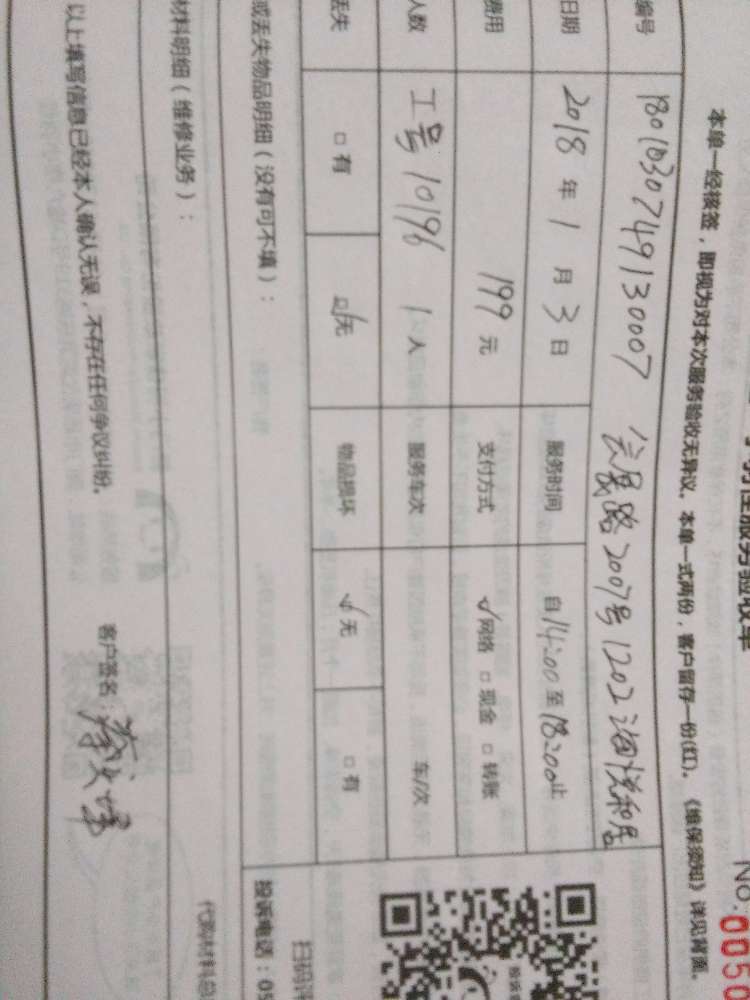 服务验收单
No.0050
本单一经核签，即视为对本次服务验收无异议。本单一式两份，客户留存一份(红)。《维保须知》详见背面。
编号 1801030749130007 会展路2007号1202海悦和居
日期 2018年1月3日 服务时间 自14:00至18:00止
费用 199元 支付方式 ☑网络 □现金 □转账
人数 工号10196 1人 服务车次 车/次
丢失 □有 ☑无 物品损坏 ☑无 □有
或丢失物品明细（没有可不填）：
投诉电话：05
扫码评
材料明细（维修业务）：
代购材料总
以上填写信息已经本人确认无误，不存在任何争议纠纷。
客户签名：